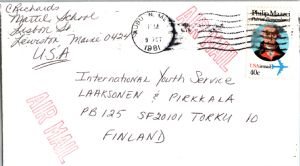 C Richards
Martel School
Lisbon St
Lewiston Maine 0424
U.S.A
AUBURN
PM
9 OCT
1981
AIR MAIL
Philip Mazzei
Patriot Remembered
USAirmail
40c
International Youth Service
LAAKSONEN & PIRKKALA
PB 125 SF20101 TURKU 10
FINLAND
AIR MAIL